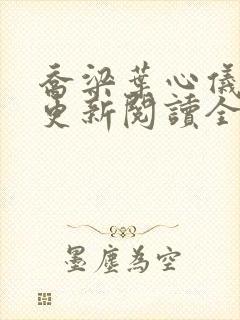 喬梁葉心儀
更新閱讀全
墨塵為空